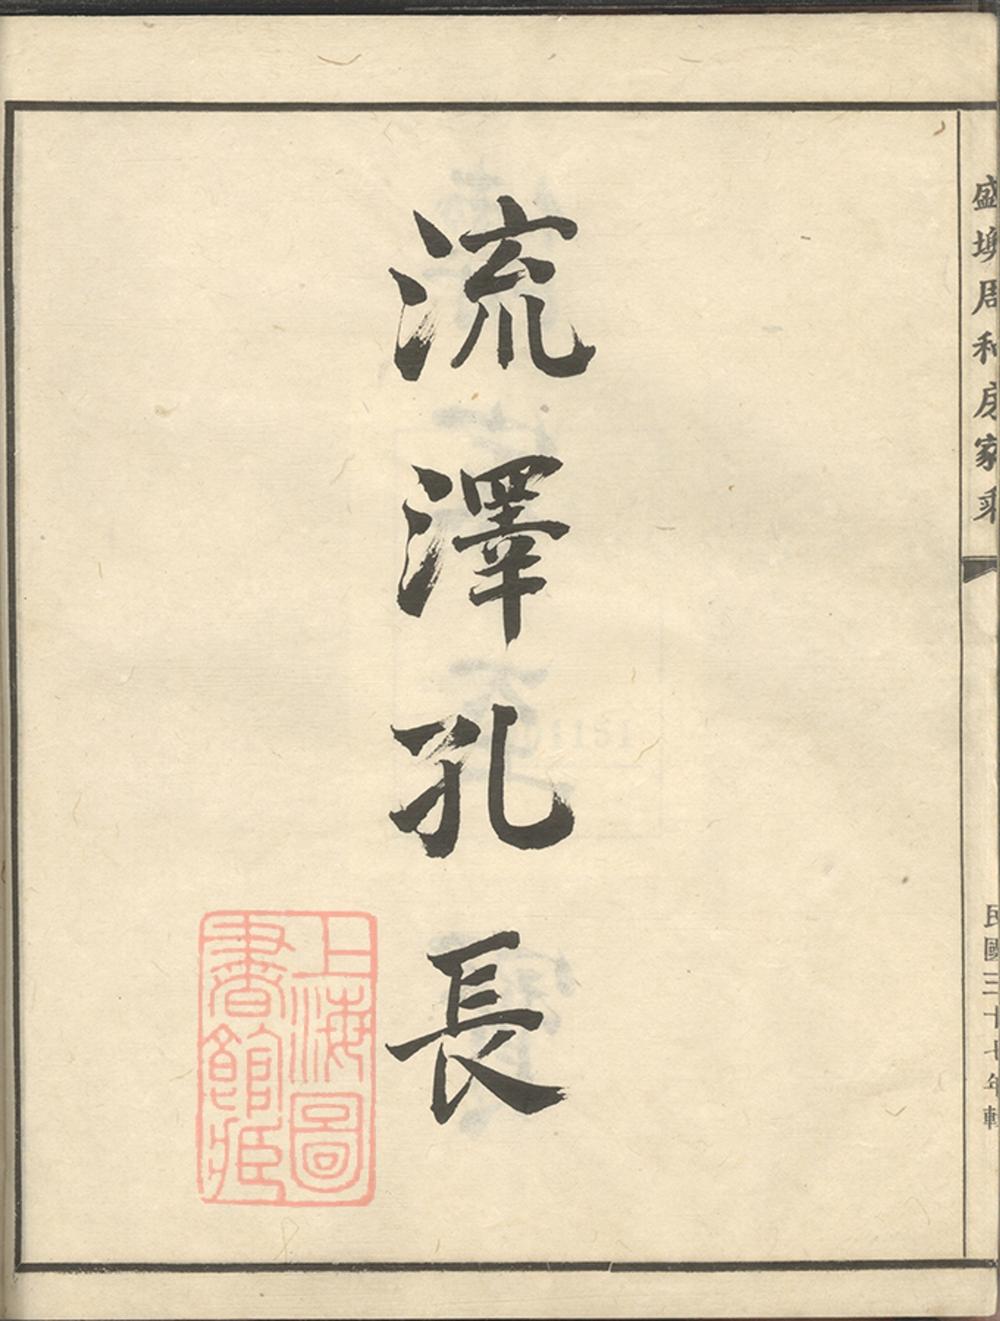 盛墺周利房家乘
民國三十七年輯
流澤孔長
上海圖
書館藏